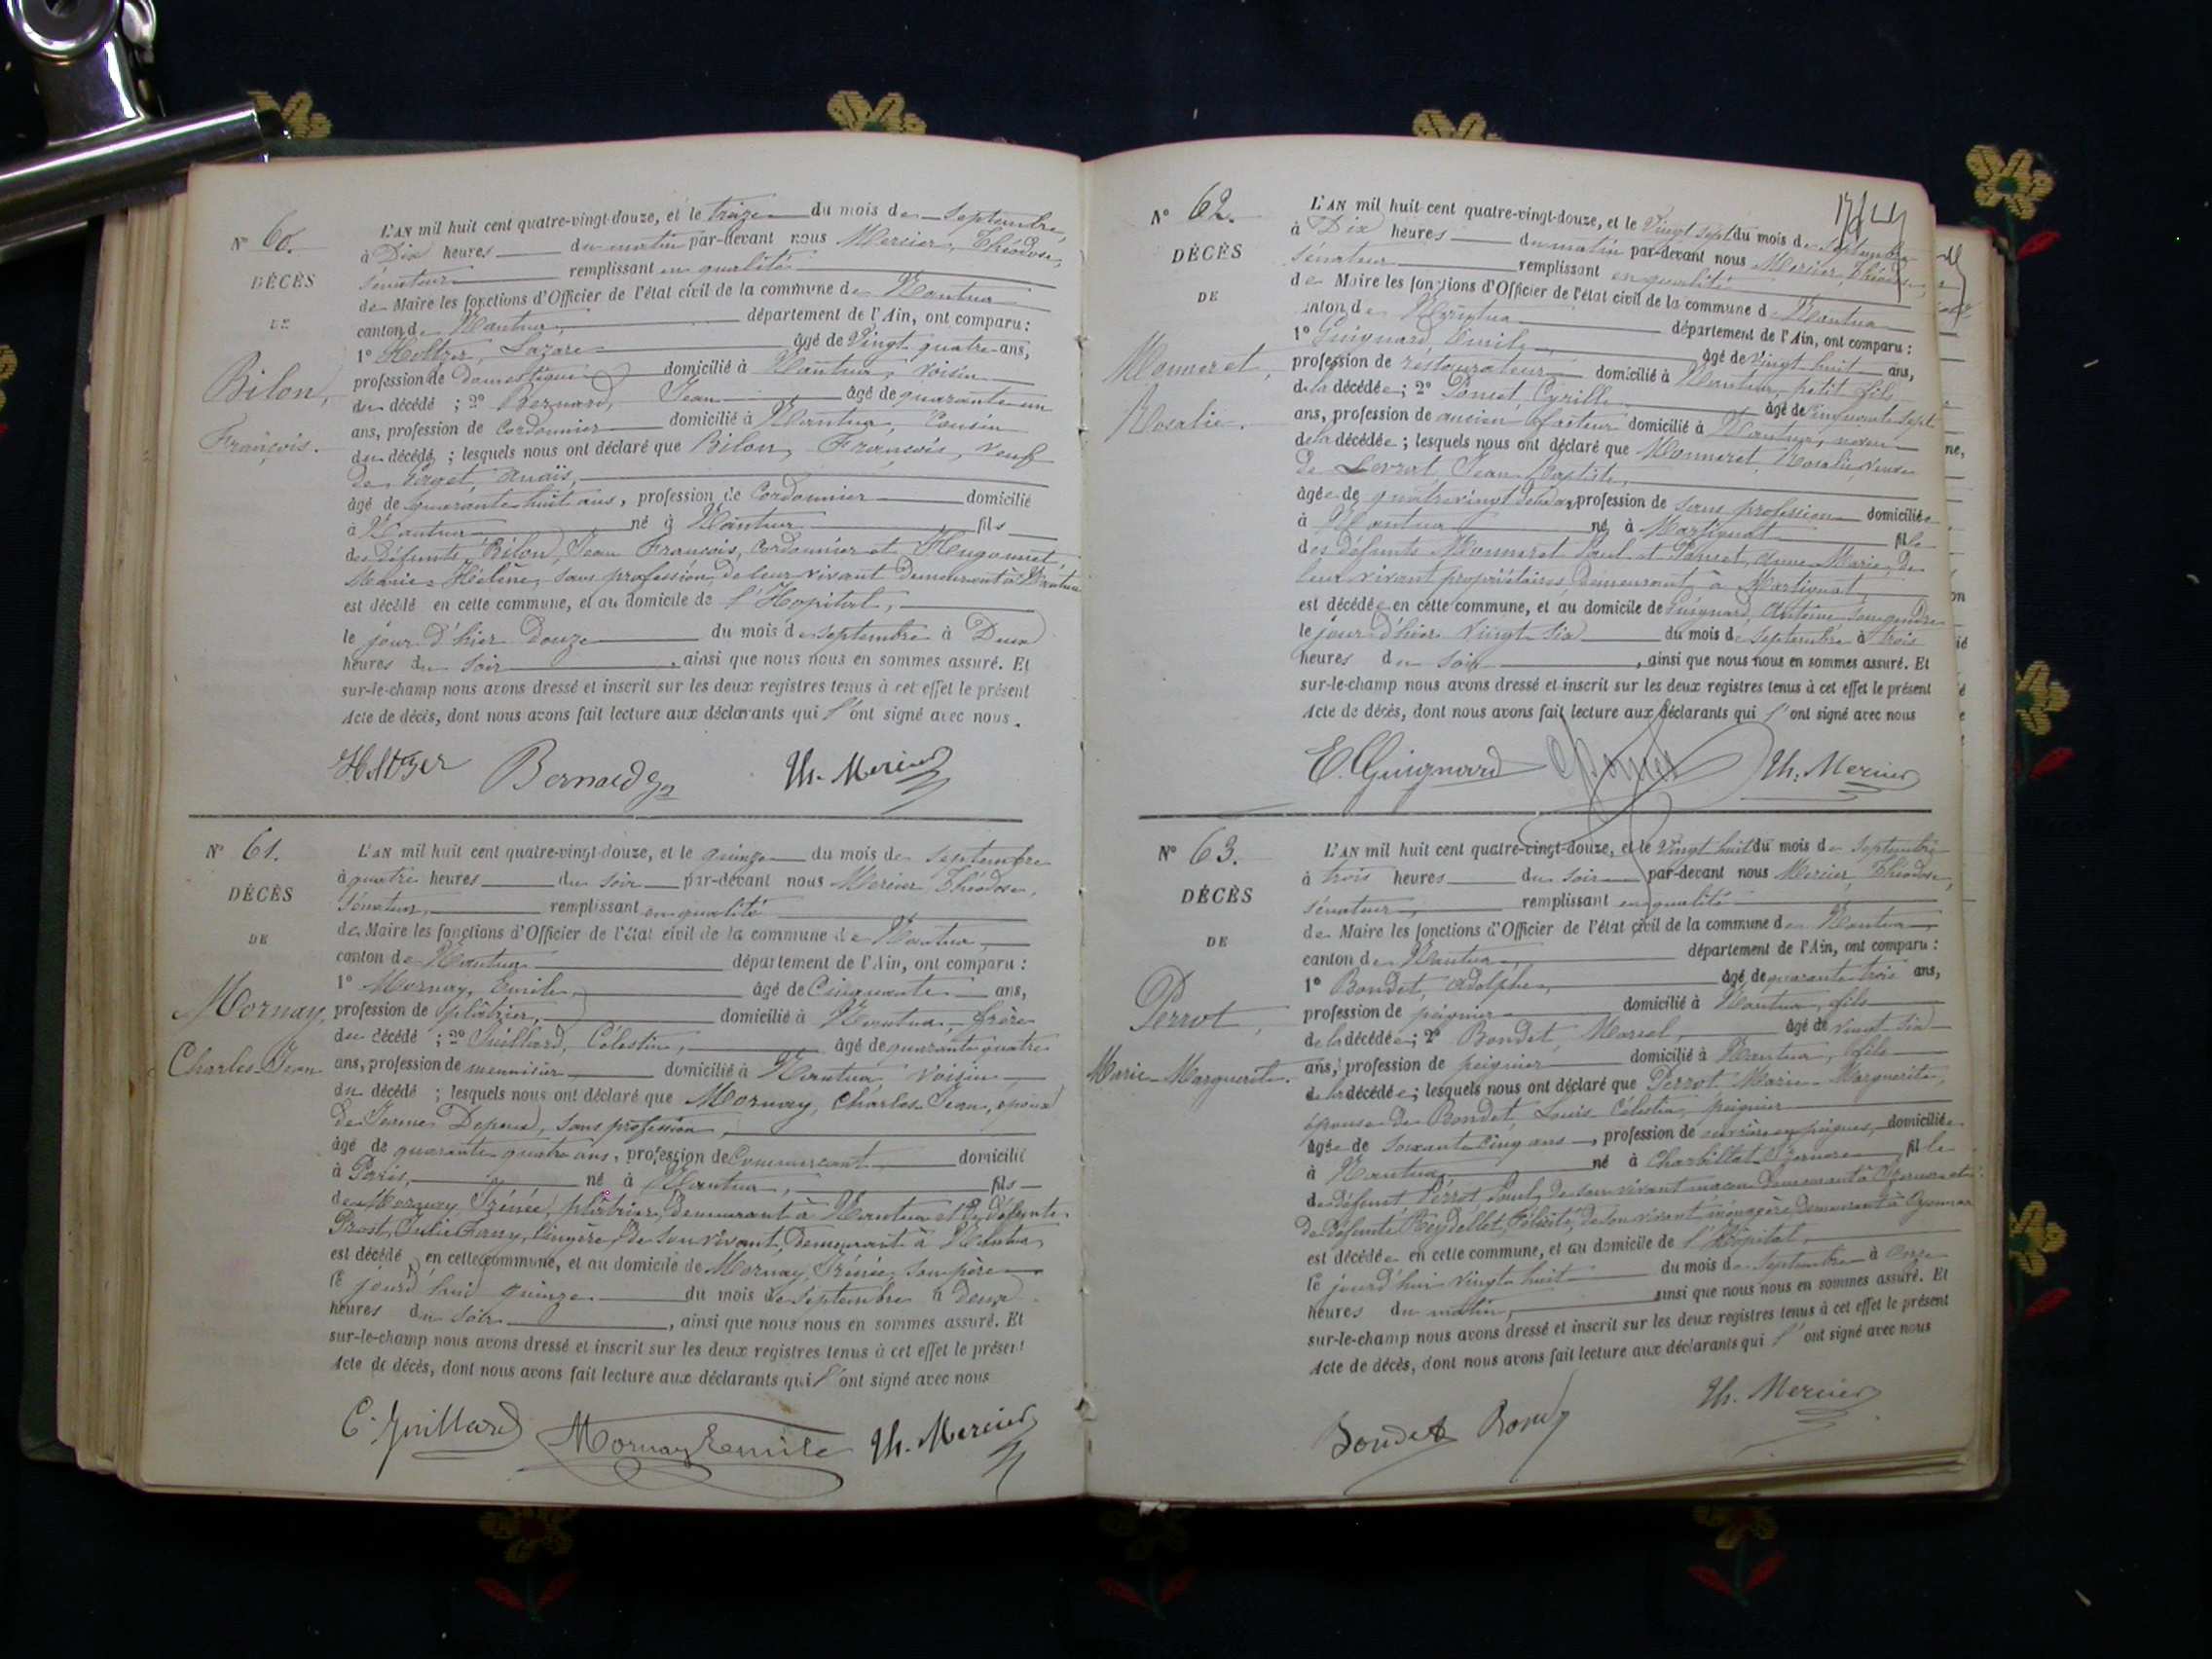 N° 60.
DÉCÈS
DE
Bilon,
François.
L'AN mil huit cent quatre-vingt-douze, et le treize du mois de septembre,
à Dix heures du matin par-devant nous Mercier, Théodose,
sénateur remplissant en qualité
de Maire les fonctions d'Officier de l'état civil de la commune de Nantua
canton de Nantua, département de l'Ain, ont comparu :
1° Holtzer, Lazare âgé de Vingt quatre ans,
profession de domestique domicilié à Nantua, voisin
du décédé ; 2° Bernard, Jean âgé de quarante un
ans, profession de Cordonnier domicilié à Nantua, Cousin
du décédé ; lesquels nous ont déclaré que Bilon, François, veuf
de Anaïs,
âgé de quarante huit ans, profession de Cordonnier domicilié
à Nantua né à Nantua fils
des défunts Bilon, Jean François, cordonnier et Hugonnet,
Marie-Hélène, sans profession, de leur vivant demeurant à Nantua
est décédé en cette commune, et au domicile de l'Hôpital,
le jour d'hier douze du mois de septembre à Deux
heures du soir, ainsi que nous nous en sommes assuré. Et
sur-le-champ nous avons dressé et inscrit sur les deux registres tenus à cet effet le présent
Acte de décès, dont nous avons fait lecture aux déclarants qui l'ont signé avec nous.
Holtzer Bernard Th. Mercier
N° 61.
DÉCÈS
DE
Mornay,
Charles-Jean
L'AN mil huit cent quatre-vingt-douze, et le quinze du mois de septembre
à quatre heures du soir par-devant nous Mercier, Théodose,
sénateur, remplissant en qualité
de Maire les fonctions d'Officier de l'état civil de la commune de Nantua,
canton de Nantua département de l'Ain, ont comparu :
1° Mornay, Emile, âgé de Cinquante ans,
profession de plâtrier, domicilié à Nantua, frère
du décédé ; 2° Juillard, Célestin, âgé de quarante quatre
ans, profession de menuisier domicilié à Nantua, voisin
du décédé ; lesquels nous ont déclaré que Mornay, Charles-Jean, époux
de Jenne Depoux, sans profession,
âgé de quarante quatre ans, profession de Commerçant domicilié
à Paris, né à Nantua, fils
de Mornay, Irénée, plâtrier, demeurant à Nantua et de défunte
Prost, Julie Fany, lingère, de son vivant, demeurant à Nantua
est décédé en cette commune, et au domicile de Mornay, Irénée, son père
le jourd'hui quinze du mois de septembre à deux
heures du soir, ainsi que nous nous en sommes assuré. Et
sur-le-champ nous avons dressé et inscrit sur les deux registres tenus à cet effet le présent
Acte de décès, dont nous avons fait lecture aux déclarants qui l'ont signé avec nous
C. Juillard Mornay Emile Th. Mercier
N° 62.
DÉCÈS
DE
Monneret,
Rosalie.
L'AN mil huit cent quatre-vingt-douze, et le Vingt sept du mois de septembre
à Dix heures du matin par-devant nous Mercier, Théodose,
sénateur remplissant en qualité
de Maire les fonctions d'Officier de l'état civil de la commune de Nantua
canton de Nantua département de l'Ain, ont comparu :
1° Guignard, Emile âgé de vingt huit ans,
profession de restaurateur domicilié à Nantua, petit fils
de la décédée ; 2° Poncet, Cyrille âgé de cinquante sept
ans, profession de ancien facteur domicilié à Nantua, neveu
de la décédée ; lesquels nous ont déclaré que Monneret, Rosalie, veuve
de Levrat, Jean Baptiste,
âgée de quatre vingt deux ans, profession de sans profession domiciliée
à Nantua né à Martignat fille
des défunts Monneret Paul et Poncet, Anne Marie, de
leur vivant propriétaires demeurant à Martignat,
est décédée en cette commune, et au domicile de Guignard, Antoine son gendre
le jour d'hier vingt six du mois de septembre à trois
heures du soir, ainsi que nous nous en sommes assuré. Et
sur-le-champ nous avons dressé et inscrit sur les deux registres tenus à cet effet le présent
Acte de décès, dont nous avons fait lecture aux déclarants qui l'ont signé avec nous
E. Guignard Th. Mercier
N° 63.
DÉCÈS
DE
Perrot,
Marie-Marguerite.
L'AN mil huit cent quatre-vingt-douze, et le Vingt huit du mois de septembre
à trois heures du soir par-devant nous Mercier, Théodose,
sénateur, remplissant en qualité
de Maire les fonctions d'Officier de l'état civil de la commune de Nantua,
canton de Nantua, département de l'Ain, ont comparu :
1° Bondet, Adolphe, âgé de quarante trois ans,
profession de peignier domicilié à Nantua, fils
de la décédée ; 2° Bondet, Marcel, âgé de vingt six
ans, profession de peignier domicilié à Nantua, fils
de la décédée ; lesquels nous ont déclaré que Perrot Marie-Marguerite,
épouse de Bondet, Louis Célestin, peignier
âgée de soixante cinq ans, profession de ouvrière en peignes, domiciliée
à Nantua, né à Charbillat Izernore fille
de défunt Perrot, Paul, de son vivant maçon demeurant à et
de défunte Reydellet, Félicité, de son vivant ménagère, demeurant à Oyonnax
est décédée en cette commune, et au domicile de l'Hôpital,
le jourd'hui vingt huit du mois de septembre à onze
heures du matin, ainsi que nous nous en sommes assuré. Et
sur-le-champ nous avons dressé et inscrit sur les deux registres tenus à cet effet le présent
Acte de décès, dont nous avons fait lecture aux déclarants qui l'ont signé avec nous
Bondet Th. Mercier